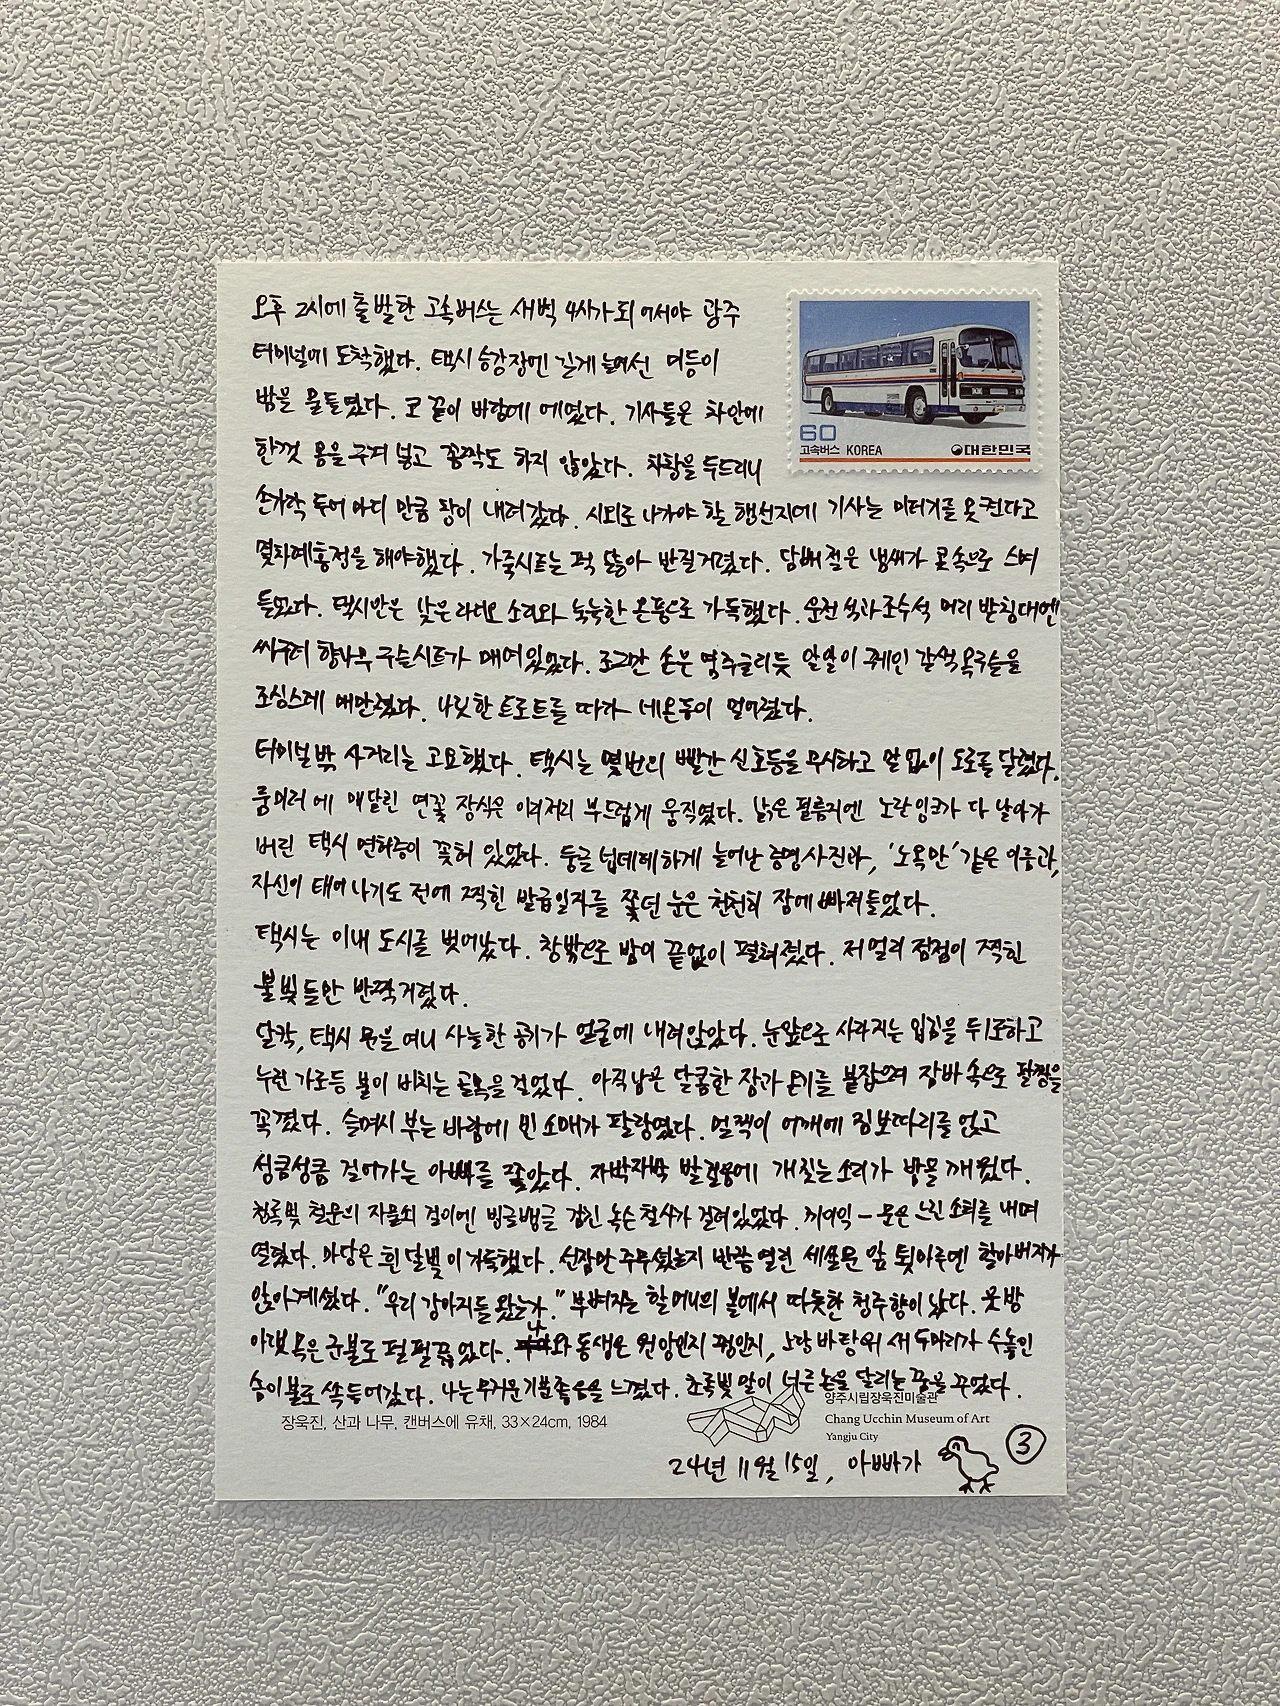 오후 2시에 출발한 고속버스는 새벽 4시가 되어서야 광주
터미널에 도착했다. 택시 승강장엔 길게 늘어선 미등이
밤을 물들였다. 코 끝이 바람에 에였다. 기사들은 차안에
한껏 몸을 구겨 넣고 꼼짝도 하지 않았다. 차창을 두드리니
손가락 두어 마디 만큼 창이 내려갔다. 시외로 나가야 할 행선지에 기사는 미터기를 못켠다고
몇차례 흥정을 해야했다. 가죽시트는 퍽 닳아 반질거렸다. 담배 절은 냄새가 콧속으로 스며
들었다. 택시안은 낮은 라디오 소리와 눅눅한 온풍으로 가득했다. 운전석과 조수석 머리 받침대엔
싸구려 향나무 구슬시트가 매여있었다. 조그만 손은 염주굴리듯 알알이 꿰인 갈색 옥구슬을
조심스레 매만졌다. 나릿한 트로트를 따라 네온등이 멀어졌다.
터미널 밖 사거리는 고요했다. 택시는 몇번의 빨간 신호등을 무시하고 말 없이 도로를 달렸다.
룸미러에 매달린 연꽃 장식은 이리저리 부드럽게 움직였다. 낡은 필름지엔 노란 잉크가 다 날아가
버린 택시 면허증이 꽂혀 있었다. 둥글 넙데데하게 늘어난 증명사진과, '노옥만' 같은 이름과,
자신이 태어나기도 전에 찍힌 발급일자를 쫓던 눈은 천천히 잠에 빠져들었다.
택시는 이내 도시를 벗어났다. 창밖으로 밤이 끝없이 펼쳐졌다. 저 멀리 점점이 찍힌
불빛들만 반짝거렸다.
달칵, 택시 문을 여니 사늘한 공기가 얼굴에 내려앉았다. 눈앞으로 사라지는 입김을 뒤로하고
누런 가로등 불이 비치는 골목을 걸었다. 아직 남은 달콤한 잠과 온기를 붙잡으며 잠바 속으로 팔짱을
꼭 꼈다. 슬며시 부는 바람에 빈 소매가 팔랑였다. 멀찍이 어깨에 짐보따리를 얹고
성큼성큼 걸어가는 아빠를 쫓았다. 자박자박 발걸음에 개 짖는 소리가 밤을 깨웠다.
청록빛 철문의 자물쇠 걸이엔 빙글뱅글 감긴 녹슨 철사가 걸려있었다. 끼이익 - 문은 느린 소리를 내며
열렸다. 마당은 흰 달빛이 가득했다. 선잠만 주무셨는지 반쯤 열린 세살문 앞 툇마루엔 할아버지가
앉아계셨다. "우리 강아지들 왔는가." 부벼지는 할머니의 볼에서 따듯한 청주향이 났다. 웃방
아랫목은 군불로 펄펄 끓었다. 나와 동생은 원앙인지 꿩인지, 노랑 바랑의 새 두마리가 수놓인
솜이불로 쏙 들어갔다. 나는 무거운 기분 좋음을 느꼈다. 초록빛 말이 너른 논을 달리는 꿈을 꾸었다.
장욱진, 산과 나무, 캔버스에 유채, 33×24cm, 1984
양주시립장욱진미술관
Chang Ucchin Museum of Art
Yangju City
24년 11월 15일, 아빠가
③
60
고속버스 KOREA 대한민국